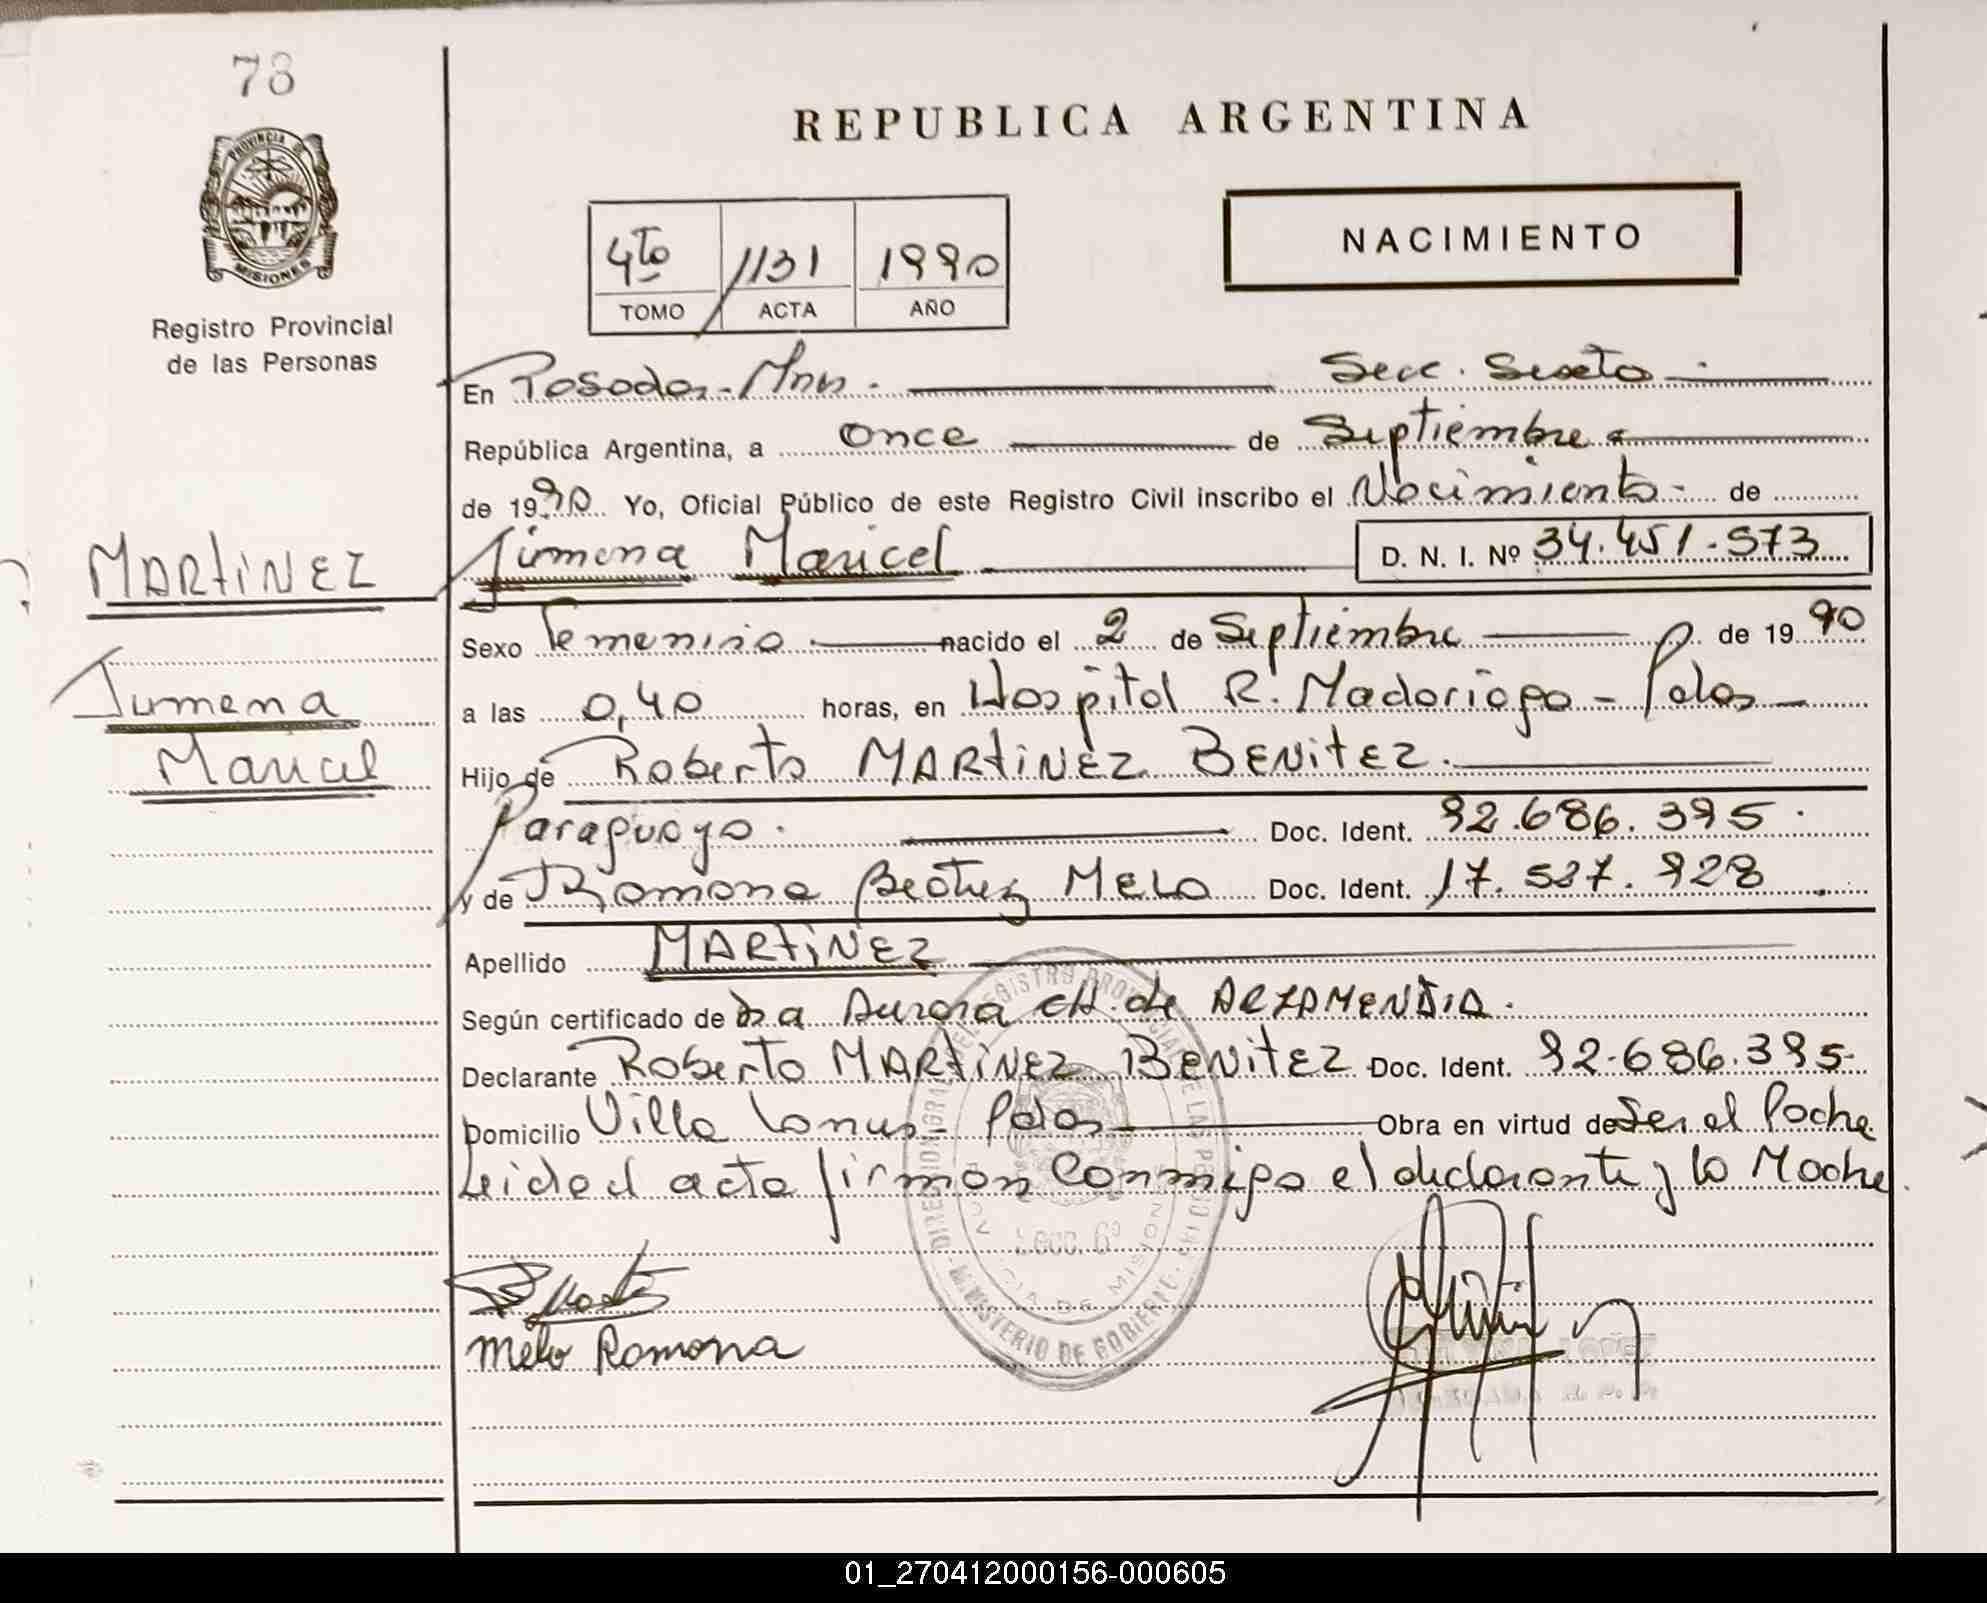 78
PROVINCIA DE
MISIONES
Registro Provincial
de las Personas
MARTINEZ
Jimena
Maricel
REPUBLICA ARGENTINA
4to 1131 1990
TOMO ACTA AÑO
NACIMIENTO
En Posadas - Mnes. Secc. Sexta
República Argentina, a once de Septiembre
de 1990 Yo, Oficial Público de este Registro Civil inscribo el Nacimiento de
Jimena Maricel D. N. I. Nº 34.451.573
Sexo Femenino nacido el 2 de Septiembre de 1990
a las 0,40 horas, en Hospital R. Madariaga - Pdas
Hijo de Roberto MARTINEZ BENITEZ.
Paraguayo. Doc. Ident. 92.686.395.
y de Ramona Beatriz Melo Doc. Ident. 17.527.928
Apellido MARTINEZ
Según certificado de Dra Aurora CH. de ARZAMENDIA.
Declarante Roberto MARTINEZ BENITEZ Doc. Ident. 92.686.395
Domicilio Villa Lanus - Pdas Obra en virtud de Ser el Padre
Leida el acta firman conmigo el declarante y la Madre.
MINISTERIO DE GOBIERNO
Melo Ramona
01_270412000156-000605